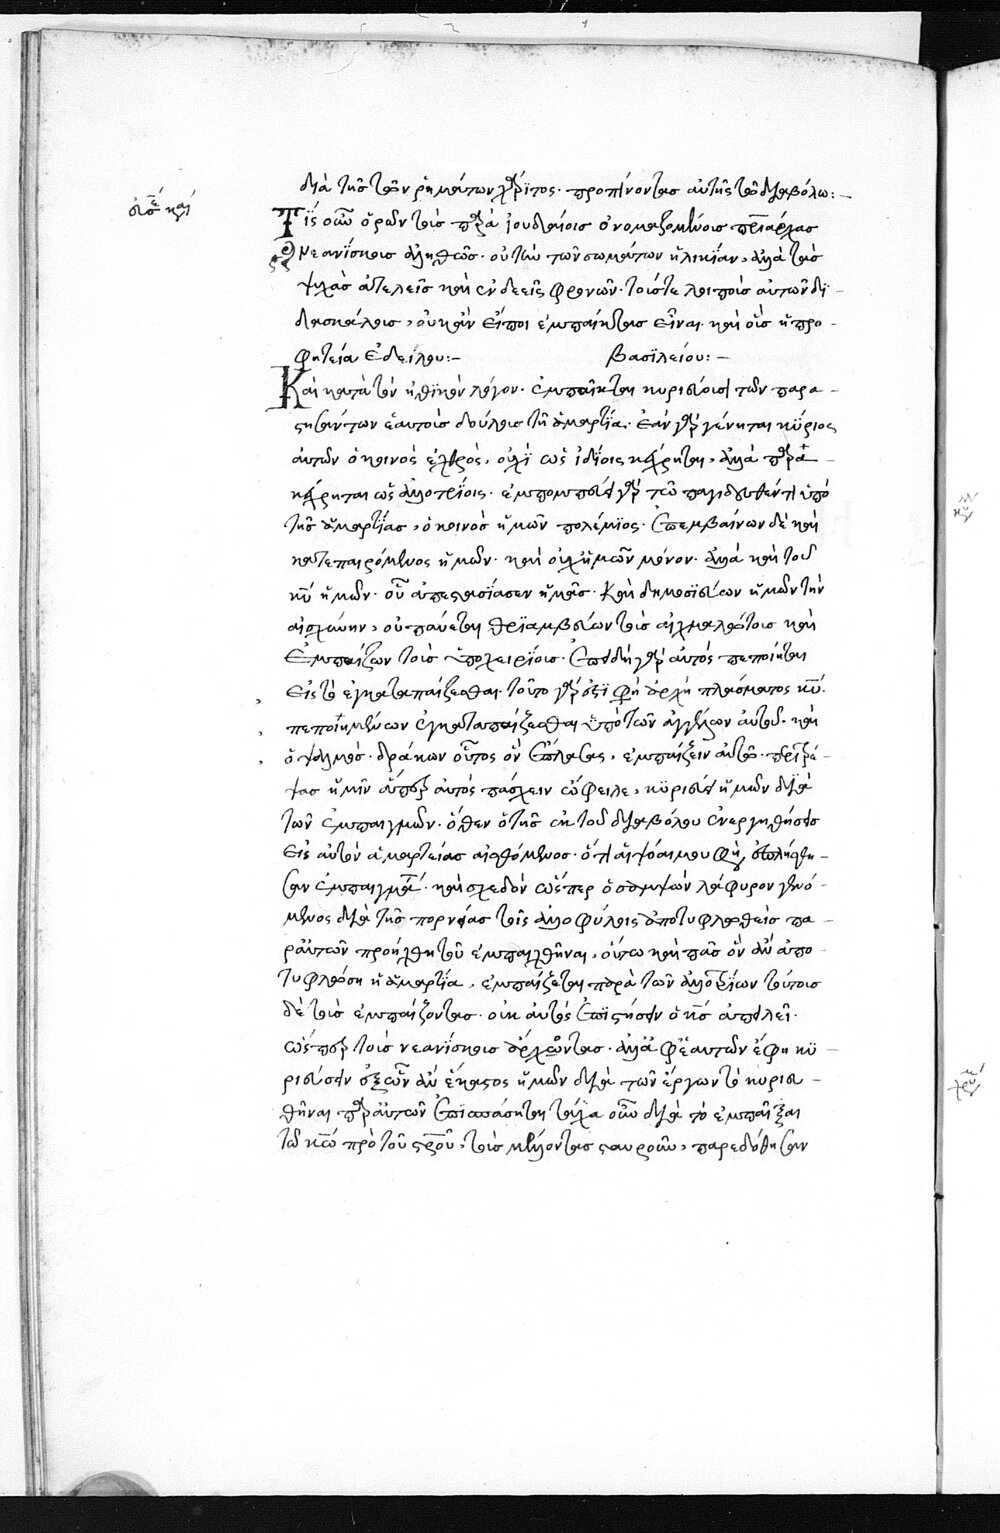 διὰ τῆς τῶν ῥημάτων χάριτος· προπίνοντας αὐτῆς τῷ διαβόλω:–
Τίς οὖν ὁρῶν τοὺς παρὰ ἰουδαίοις ὀνομαζομένους πριάρχας
νεανίσκοις ἀληθῶς· οὐ τὴν τῶν σωμάτων ἡλικίαν, ἀλλὰ τὰς
ψυχὰς ἀτελεῖς καὶ ἐνδεεῖς φρενῶν· τούς τε λοιποὺς αὐτῶν δι–
δασκάλους, οὐκ ἂν εἴποι ἐμπαίκτας εἶναι καὶ οὓς ἡ προ–
φητεία ἐδείλου:– Βασϊλείου:–
Καὶ κατὰ τὸν ἠθϊκὸν λόγον· ἐμπαῖκται κυριεύουσι τῶν παρα–
στησάντων ἑαυτοὺς δούλους τῆ ἁμαρτία· Ἐὰν γὰρ γένηται κύριος
αὐτῶν ὁ κοινὸς ἐχθρὸς, οὐχὶ ὡς ἰδίοις κέχρηται, ἀλλὰ
κέχρηται ὡς ἀλλοτρίοις· τῶ παγιδευθέντι ὑπὸ
τῆς ἁμαρτίας, ὁ κοινὸς ἡμῶν πολέμϊος· Ἐπεμβαίνων δὲ καὶ
κατεπαιρόμενος ἡμῶν· καὶ οὐχ ἡμῶν μόνον· ἀλλὰ καὶ τοῦ
κυ ἡμῶν· οὗ ἀπεσπασίασεν ἡμᾶς· Καὶ δημοσϊεύων ἡμῶν τὴν
αἰσχύνην, οὐ παύεται θρϊαμβεύων τοὺς αἰχμαλώτους καὶ
Ἐμπαίζων τοῖς ὑποχειρίοις· Ἐπειδὴ γὰρ αὐτὸς πεποίηται
Εἰς τὸ ἐγκαταπαίζεσθαι· τοῦτο γάρ ἐστϊ φη ἀρχὴ πλάσματος κυ·
πεποιημένων ἐγκαταπαίζεσθαι ὑπὸ τῶν ἀγγέλων αὐτοῦ· καὶ
ὁ ψαλμὸς· δράκων οὗτος ὃν ἔπλασας, ἐμπαίζειν αὐτῶ·
ψας ἡμῖν ἅπερ αὐτὸς πάσχειν ὤφειλε, κυριεύει ἡμῶν διὰ
τῶν ἐμπαιγμῶν· ὅθεν ὁ τῆς ἐκ τοῦ διαβόλου ἐνεργηθείσης
εἰς αὐτὸν ἁμαρτείας αἰσθόμενος· ὅτι αἱ ψόαι μου φη ἐπλήσθη–
σαν ἐμπαιγμάτ· καὶ σχεδὸν ὥσπερ ὁ σαμψὼν λάφυρον γενό–
μενος διὰ τῆς πορνείας τοῖς ἀλλοφύλοις ἀποτυφλωθεὶς πα–
ραὐτῶν προήχθη τοῦ ἐμπαιχθῆναι, οὕτω καὶ πᾶς ὃν ἂν ἀπο–
τυφλώση ἡ ἁμαρτία, ἐμπαίζεται παρὰ τῶν ἀλλοτρίων τούτοις
δὲ τοὺς ἐμπαίζοντας· οὐκ αὐτὸς Ἐπϊστήσειν ὁ κς ἀπειλεῖ·
ὥσπερ τοὺς νεανίσκους ἄρχοντας· ἀλλὰ ἀφἑαυτῶν ἔφη κυ–
ριεύσειν ἐξ ὧν ἂν ἕκαστος ἡμῶν διὰ τῶν ἔργων τὸ κυριευ–
θῆναι παραὐτῶν Ἐπισπάσηται τάχα οὖν διὰ τὸ ἐμπαῖξαι
τῶ κω πρὸ τοῦ στρου, τοὺς μέλλοντας σταυροῦν, παρεδόθησαν